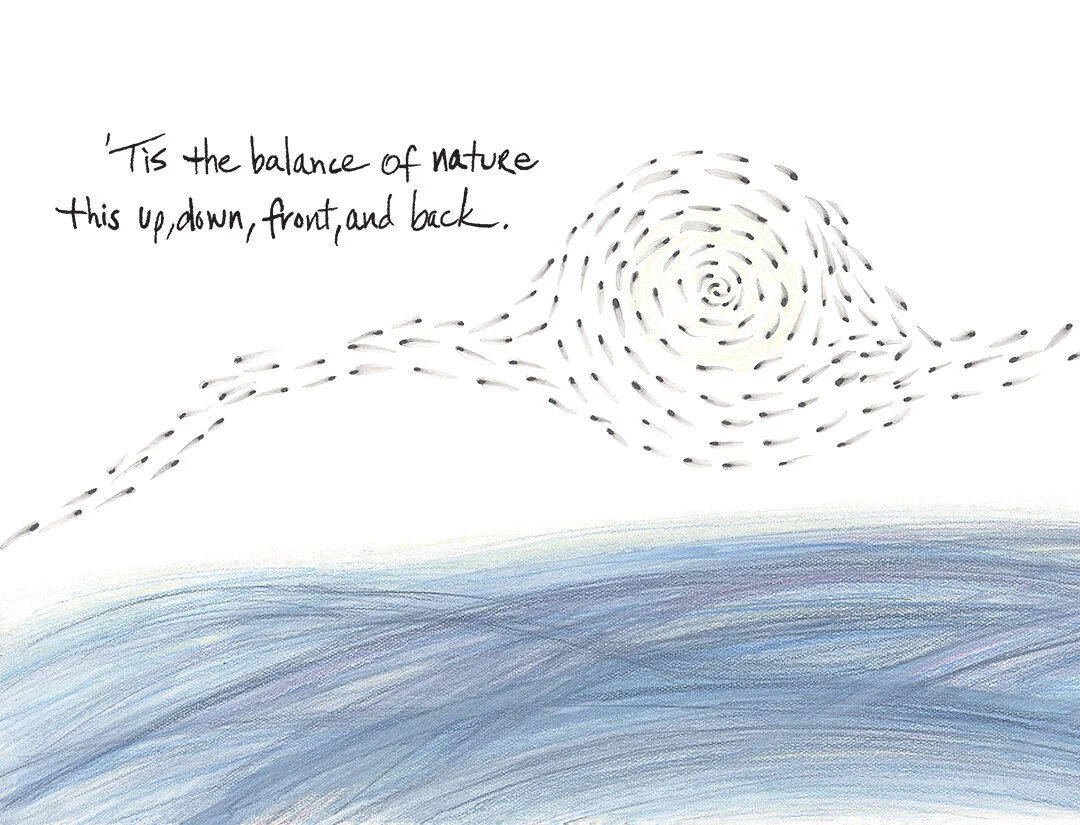 'Tis the balance of nature
this up, down, front, and back.